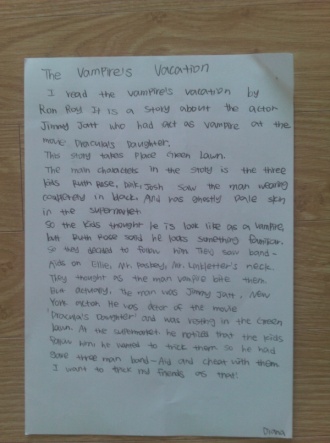 The Vampire's Vacation
I read the vampire's vacation by
Ron Roy It is a story about the actor
Jimmy Jatt who had act as vampire at the
movie Dracula's Daughter.
This story takes place Green Lawn.
The main characters in the story is the three
kids Ruth Rose, Dink, Josh saw the man wearing
completely in black. And has ghostly pale skin
in the supermarket
So the kids thought he is look like as a vampire,
but Ruth Rose said he looks something familiar.
So they decided to follow him They saw band-
Aids on Ellie, Mr. Paskey, Mr. Linkletter's neck.
They thought as the man vampire bite them.
But actually, the man was Jimmy Jatt, New
York actor. He was actor of the movie
'Dracula's Daughter' and was resting in the Green
lawn. At the supermarket he noticed that the kids
follow him. He wanted to trick them so he had
gave three man band-Aid and cheat with them
I want to trick my friends as that.
Diana